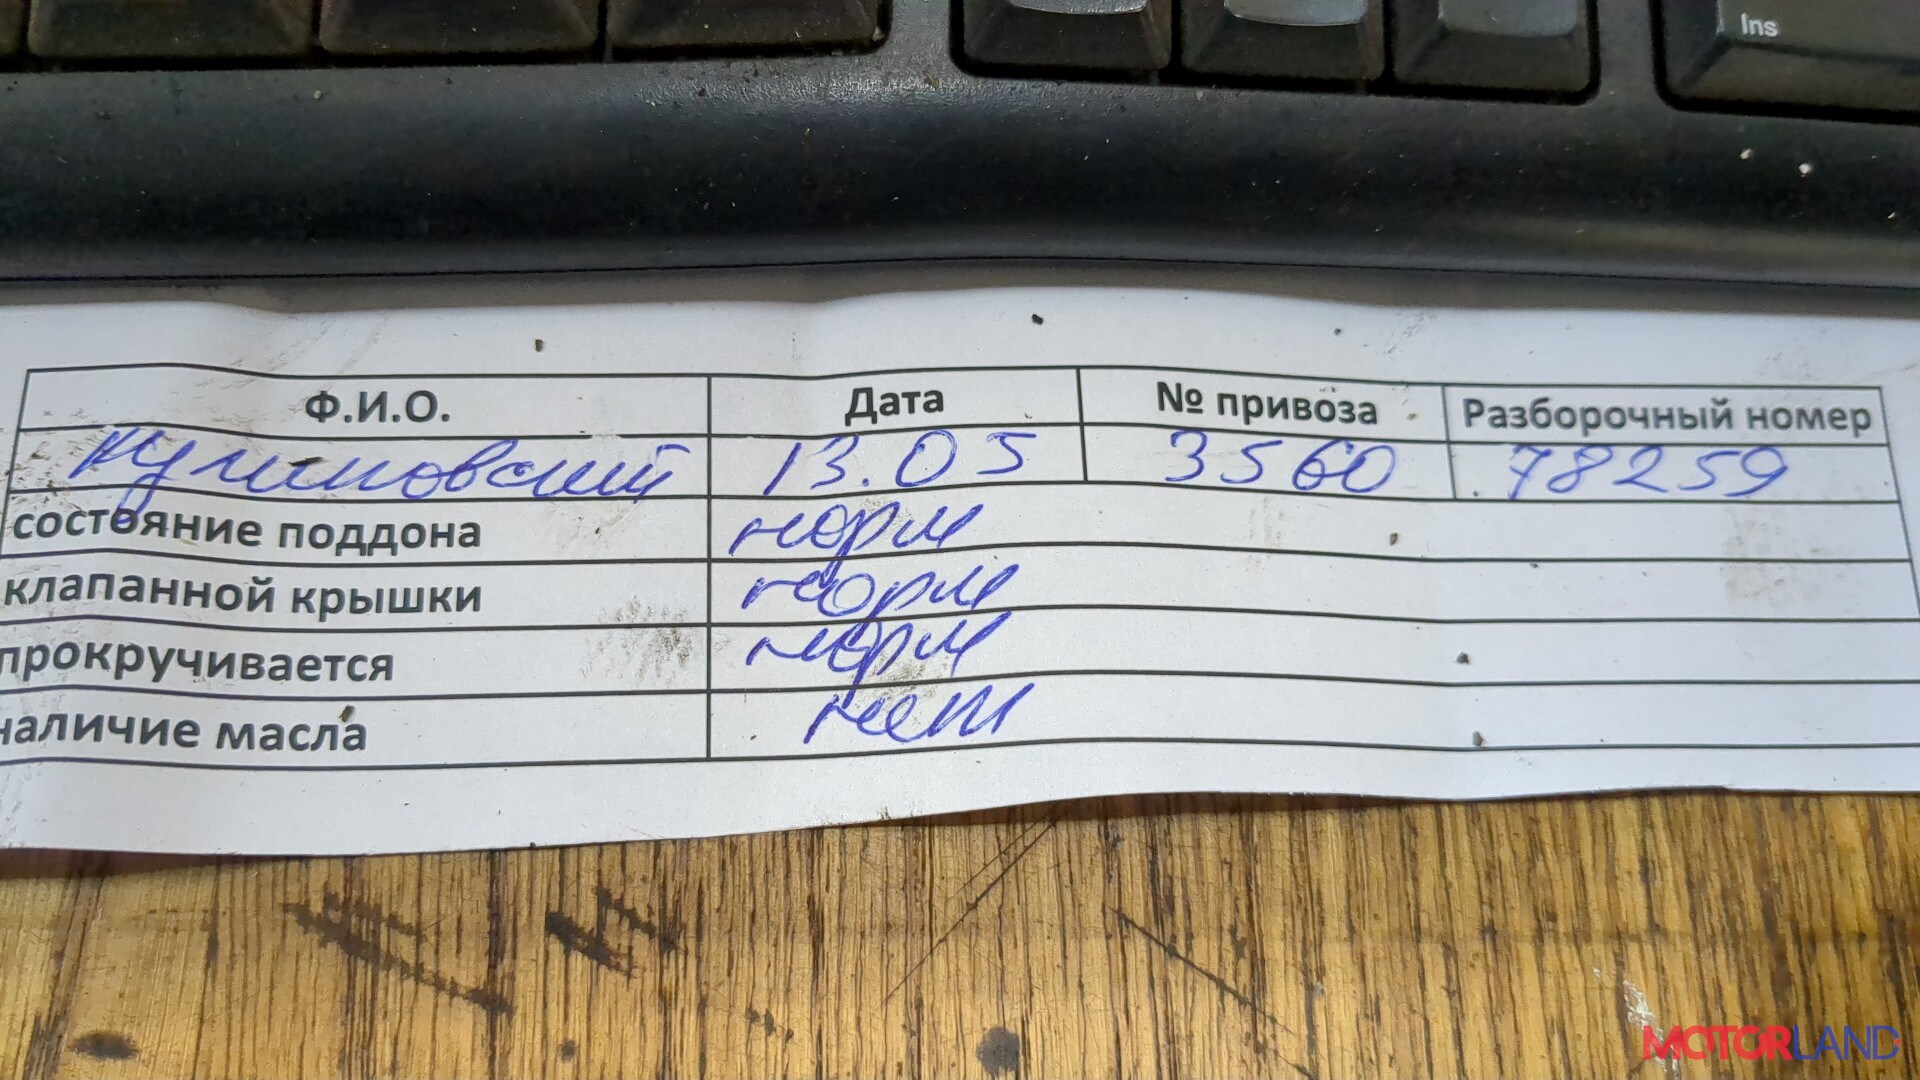 Ins
Ф.И.О. Дата № привоза Разборочный номер
13.05 3560 78259
состояние поддона норм
клапанной крышки норм
прокручивается норм
наличие масла нет
MOTORLAND